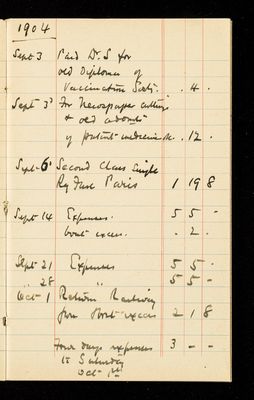 1904
Sept 3 Paid Dr. S for
old Diploma of
Vaccination . 4 .
Sept 3 For Newspaper cuttings
& old
of patent medicine . 12 .
Sept 6 Second Class Single
Ry Fare Paris 1 19 8
Sept 14 Expenses. 5 5 -
. 2 .
Sept 21 Expenses 5 5 -
" 28 " 5 5 -
Oct 1 Return Railway
fare 2 1 8
Four days expenses 3 - -
to Saturday
Oct 1st